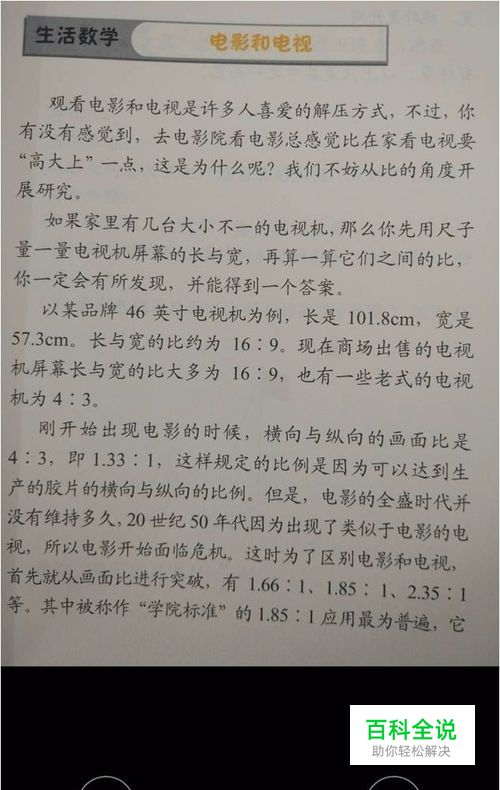 生活数学
电影和电视
观看电影和电视是许多人喜爱的解压方式，不过，你
有没有感觉到，去电影院看电影总感觉比在家看电视要
“高大上”一点，这是为什么呢？我们不妨从比的角度开
展研究。
如果家里有几台大小不一的电视机，那么你先用尺子
量一量电视机屏幕的长与宽，再算一算它们之间的比，
你一定会有所发现，并能得到一个答案。
以某品牌 46 英寸电视机为例，长是 101.8cm，宽是
57.3cm。长与宽的比约为 16∶9。现在商场出售的电视
机屏幕长与宽的比大多为 16∶9，也有一些老式的电视
机为 4∶3。
刚开始出现电影的时候，横向与纵向的画面比是
4∶3，即 1.33∶1，这样规定的比例是因为可以达到生
产的胶片的横向与纵向的比例。但是，电影的全盛时代并
没有维持多久，20 世纪 50 年代因为出现了类似于电影的电
视，所以电影开始面临危机。这时为了区别电影和电视，
首先就从画面比进行突破，有 1.66∶1、1.85∶1、2.35∶1
等。其中被称作“学院标准”的 1.85∶1 应用最为普遍，它
百科全说
助你轻松解决